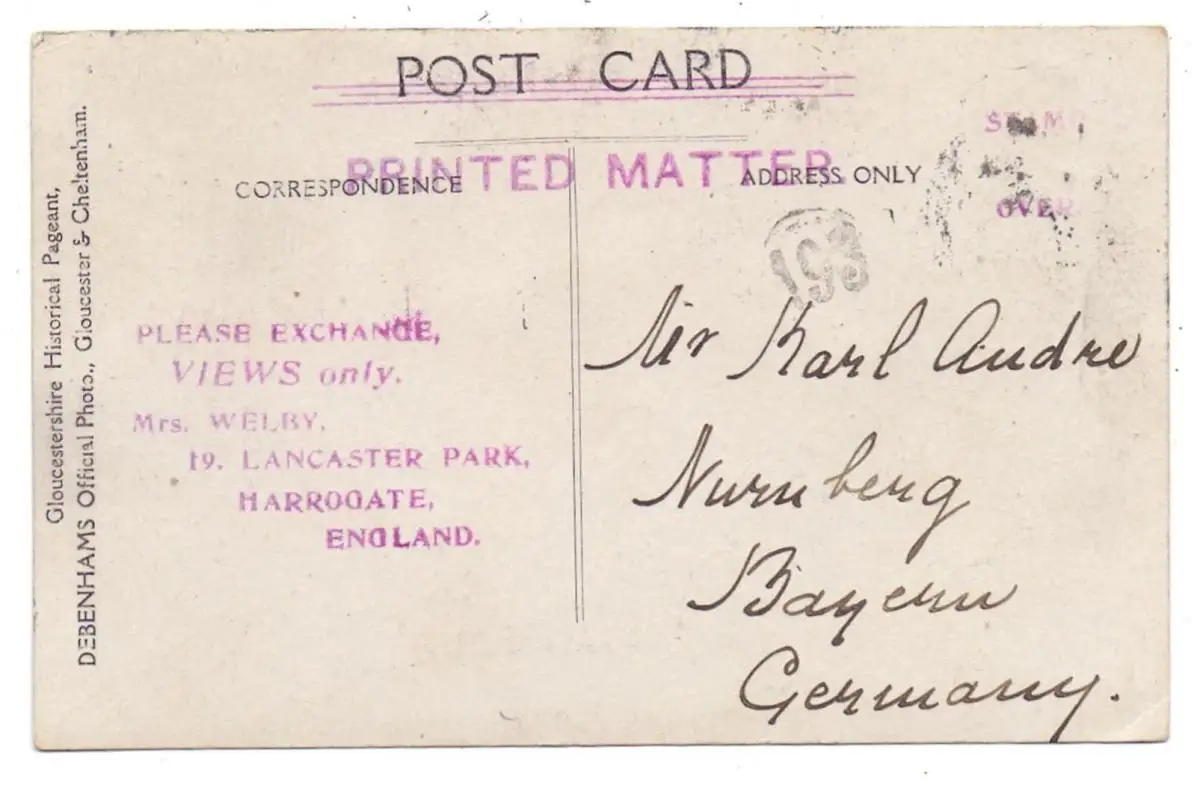 POST CARD
PRINTED MATTER
CORRESPONDENCE
ADDRESS ONLY
STAMP
OVER
193
Gloucestershire Historical Pageant,
DEBENHAMS Official Photo., Gloucester & Cheltenham.
PLEASE EXCHANGE,
VIEWS only.
Mrs. WELBY,
19. LANCASTER PARK,
HARROGATE,
ENGLAND.
Mr Karl Andre
Nurnberg
Bayern
Germany.